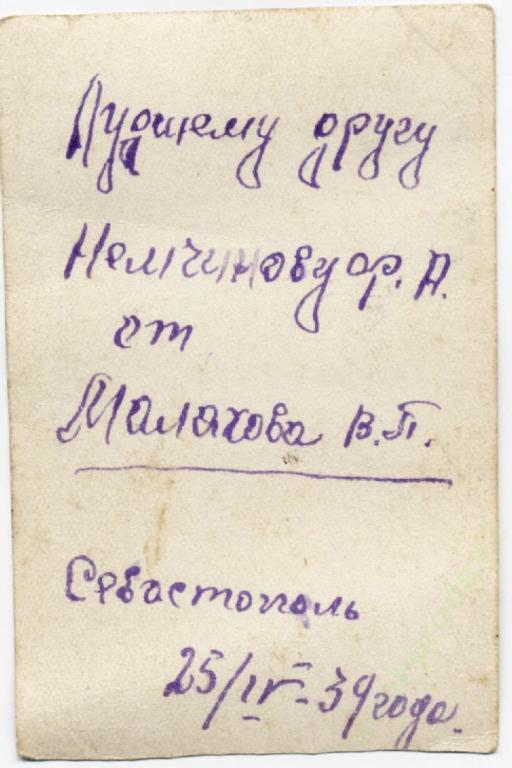 Лучшему другу
Немчинову Ф. А.
от
Малахова В.П.
Севастополь
25/IV-39 года.